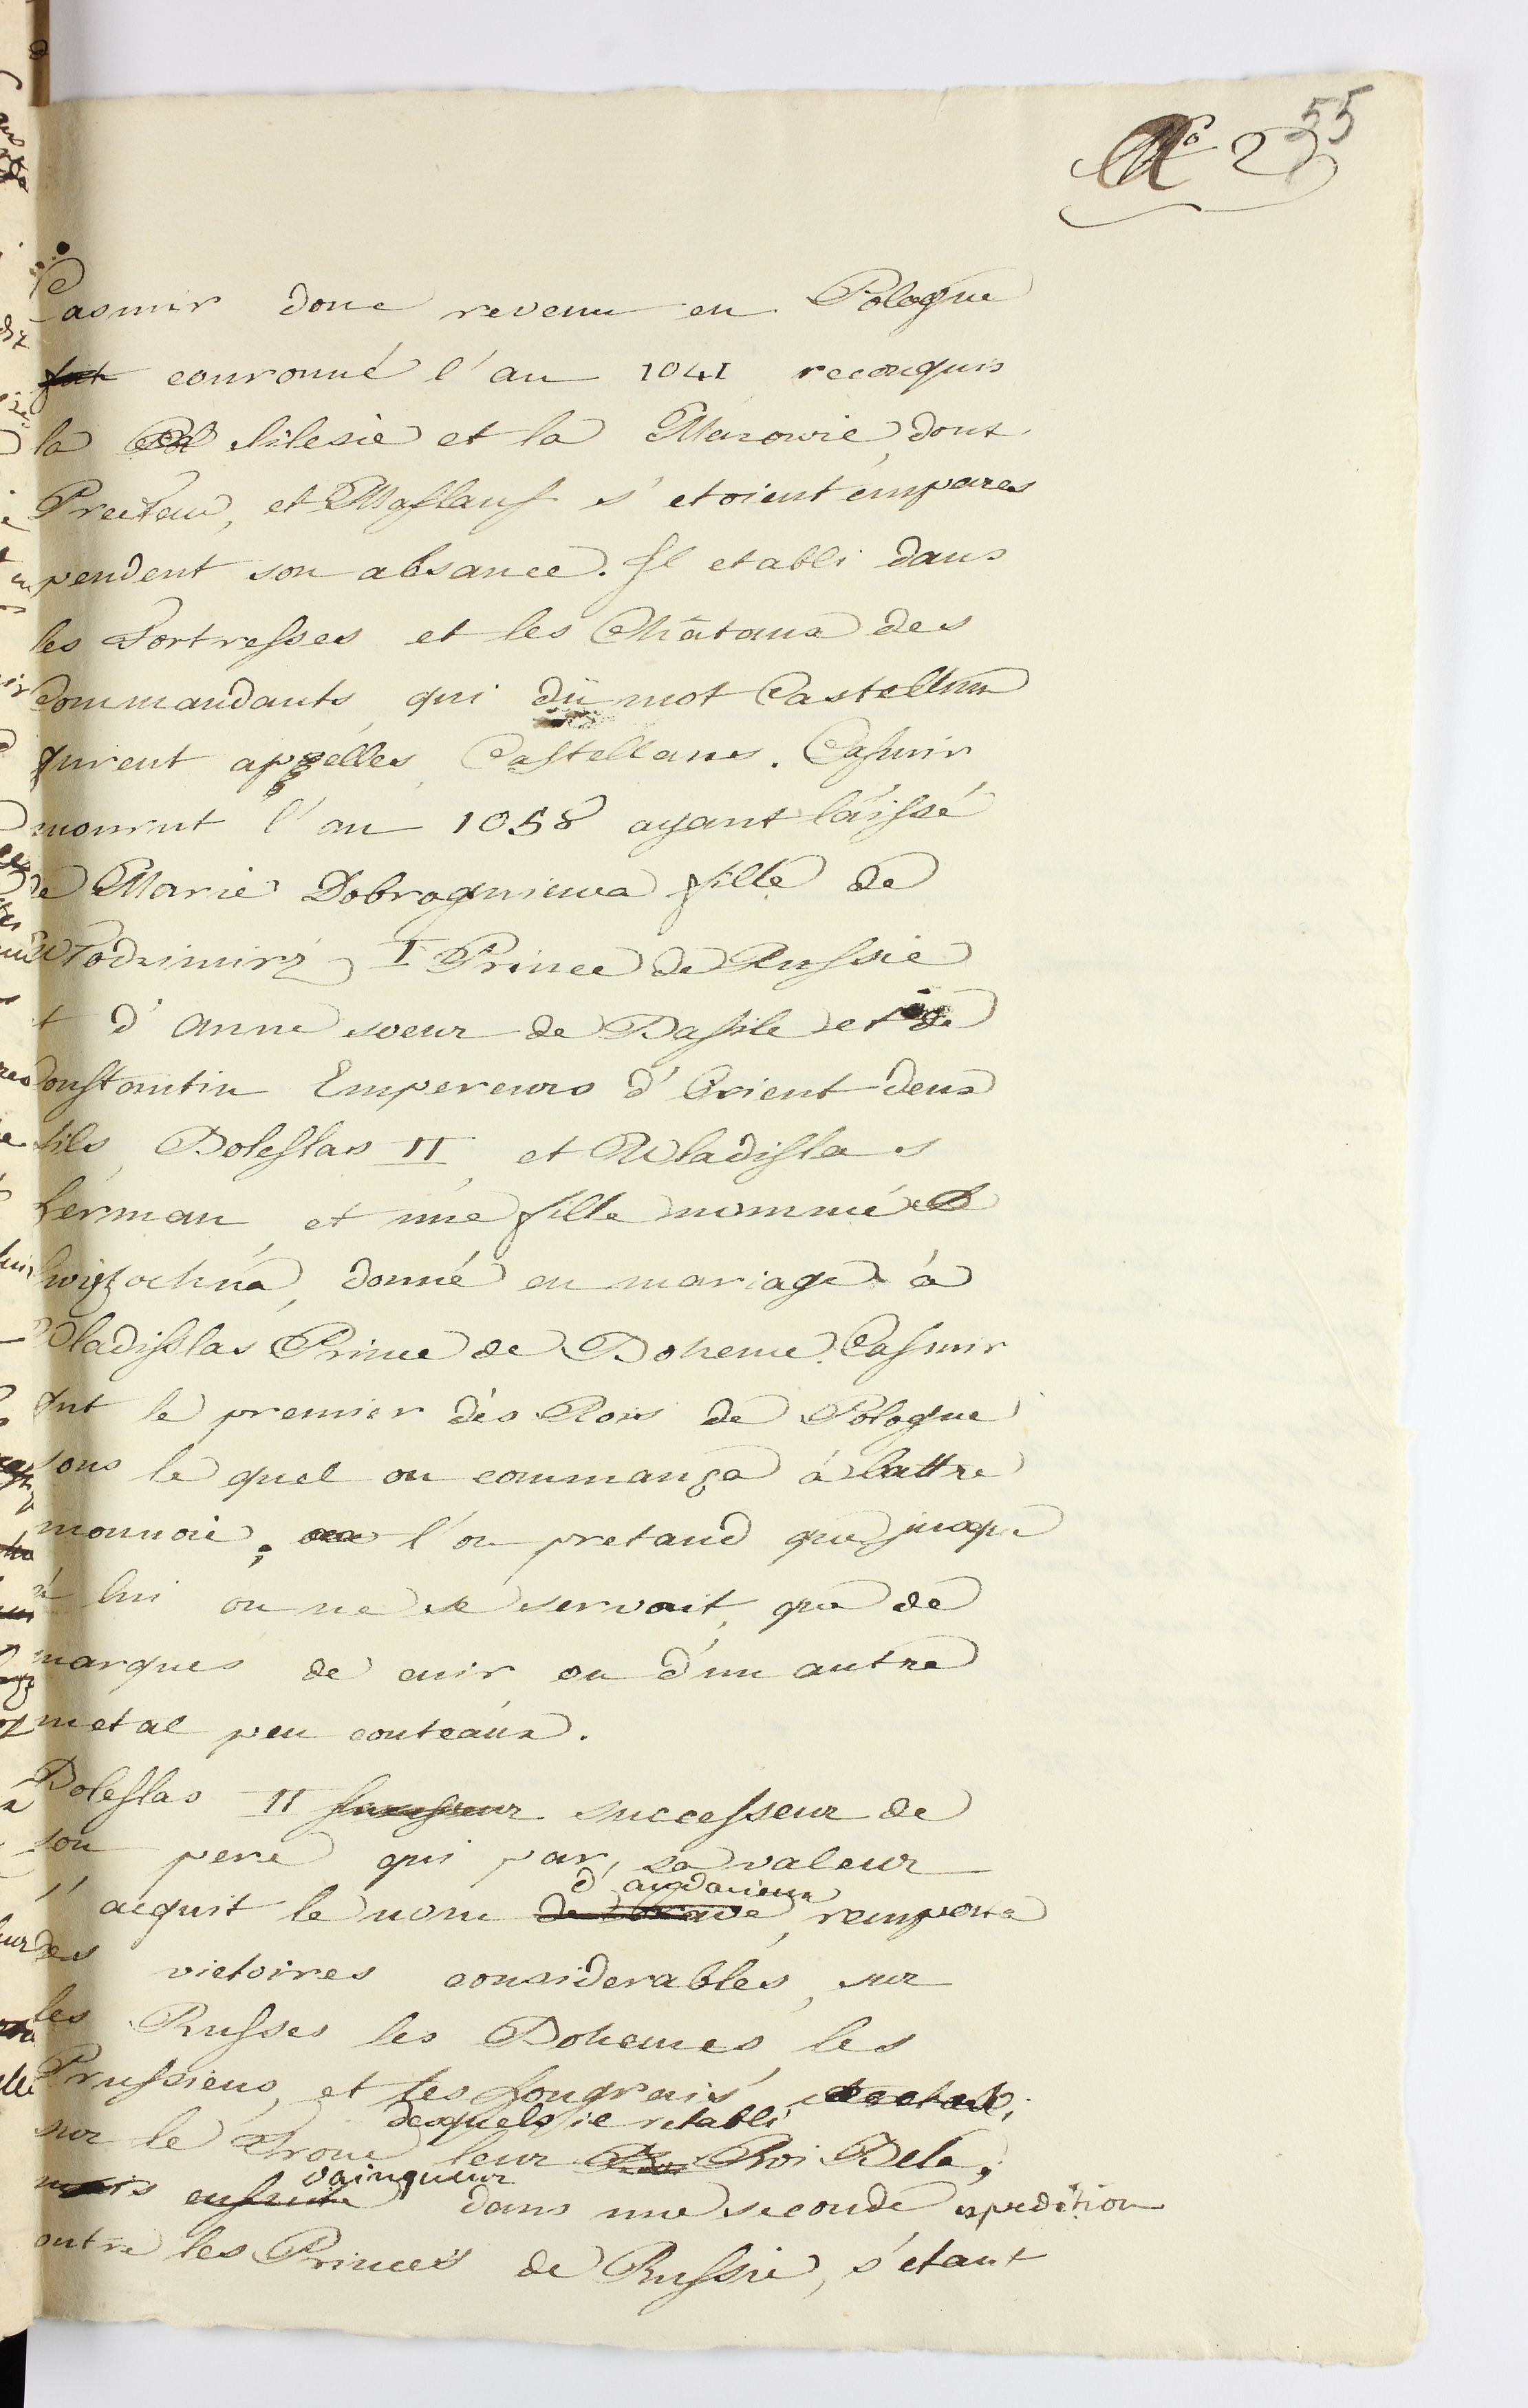 55
No 2
Casmir donc revenu en Pologne
fut couronné l'an 1041 reconquis
la Silesie et la Mazowie, dont
Pretzlau, et Maslaus s'etoient empares
pendent son absance. Il etabli dans
les Fortresses et les Châtaux des
Commandants, qui dü mot Castellum
furent appélles Castellans. Casmir
mourut l'an 1058 ayant láissé
de Marie Dobrogniewa fille de
Wlodzimirz I Prince de Russie
et d'Anne soeur de Basile et de
Constantin Empereurs d'Orient deux
fils, Boleslas II et Wladislas
Herman, et une fille nommé
Swigtochna, donné en mariage à
Wladislas Prince de Boheme. Casmir
fut le premier dés Rois de Pologne
sous le quel on commança à battre
monnoie; l'on pretand que jusque
à lui on ne se servait, que de
marques de cuir ou d'un autre
metal peu couteaúx.
Boleslas II successeur de
son pere qui par sa valeur
d'audacieux
s'acquit le nom de brave, remporta
des victoires considerables, sur
les Russes les Bohemes, les
Prussiens, et les Hongrais
desquels il retabli
sur le Throne leur Roi Bela;
vainqueur
mais ensuite dans une seconde expedition
contre les Princes de Russie, s'etant